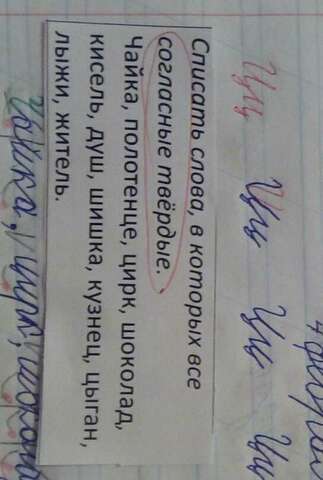 4 феврал
Цц Цц Цц Цц
Списать слова, в которых все
согласные твёрдые.
Чайка, полотенце, цирк, шоколад,
кисель, душ, шишка, кузнец, цыган,
лыжи, житель.
Чайка, цирк, шокол